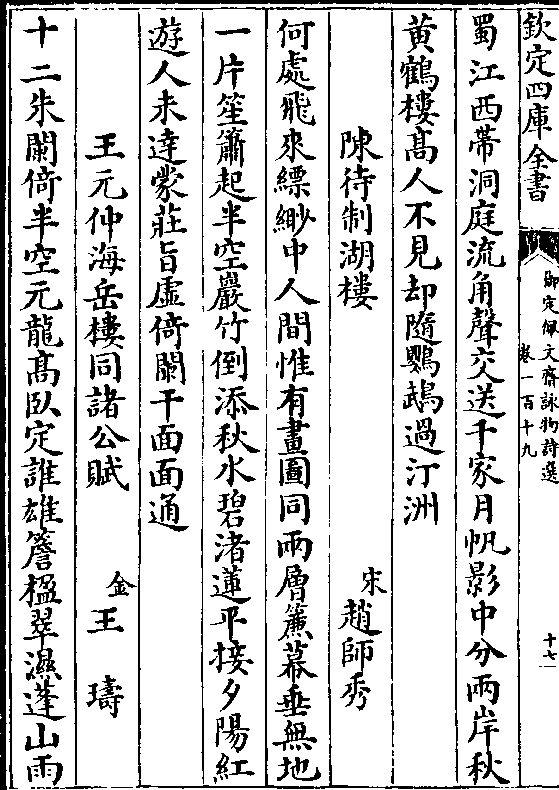 欽定四庫全書
御定佩文齋詠物詩選
卷一百十九
十七
蜀江西帶洞庭流角聲交送千家月帆影中分兩岸秋
黃鶴樓高人不見却隨鸚鵡過汀洲
陳待制湖樓
宋趙師秀
何處飛來縹緲中人間惟有畫圖同兩層簾幕垂無地
一片笙簫起半空巖竹倒添秋水碧渚蓮平接夕陽紅
遊人未達蒙莊旨虛倚闌干面面通
王元仲海岳樓同諸公賦
金王璹
十二朱闌倚半空元龍高臥定誰雄簷楹翠濕蓬山雨